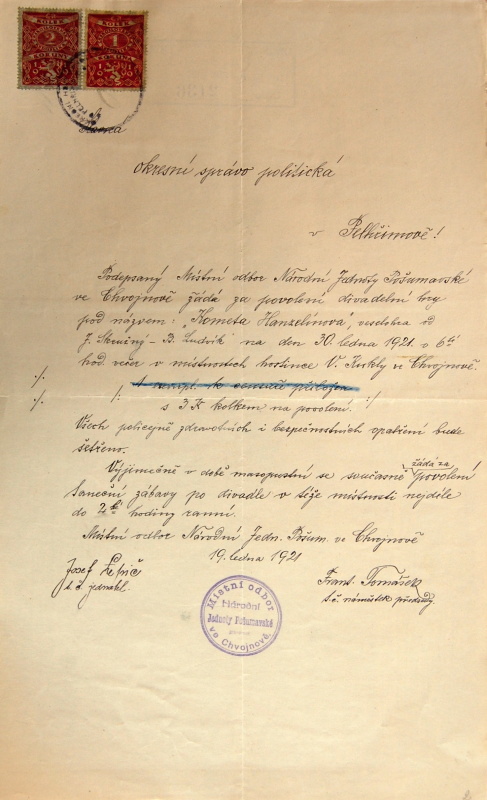 KOLEK
2
KORUNA
KOLEK
1
KORUNA
Slavná
okresní správo politická
v Pelhřimově!
Podepsaný Místní odbor Národní Jednoty Pošumavské
ve Chvojnově žádá za povolení divadelní hry
pod názvem: "Kometa Hanzelínova", veselohra od
J. Skružný - B. Ludvík na den 30. ledna 1921 o 6té
hod. večer v místnostech hostince V. Kukly ve Chvojnově.
:/. /: A rukopi. k censuře přiložen
:/. s 3 K kolkem na povolení. :/
Všech policejně zdravotních i bezpečnostních opatření bude
šetřeno.
Výjimečně v době masopustní se současně žádá za povolení
taneční zábavy po divadle v téže místnosti neděle
do 2hé hodiny ranní.
Místní odbor Národní Jedn. Pošum. ve Chvojnově
19. ledna 1921
Josef Lepič
t. č. jednatel.
Frant. Tomášek
t. č. náměstek předsedy
Místní odbor
Národní
Jednoty Pošumavské
ve Chvojnově.